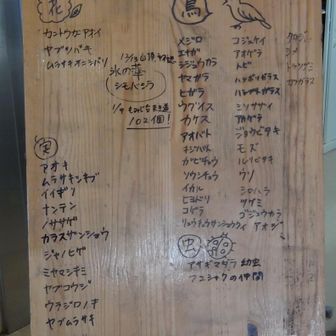 花
カントウカンアオイ
ヤブツバキ
ムラサキオニシバリ
氷の華
シモバシラ
102個!
実
アオキ
ムラサキシキブ
イイギリ
ナンテン
ノササゲ
カラスザンショウ
ジャノヒゲ
ミヤマシキミ
ヤブコウジ
ウラジロノキ
ヤブムラサキ
鳥
メジロ
エナガ
シジュウカラ
ヤマガラ
ヒガラ
ウグイス
カケス
アオバト
キジバト
ガビチョウ
ソウシチョウ
イカル
ヒヨドリ
コゲラ
リュウキュウサンショウクイ
コジュケイ
アオゲラ
トビ
ハシボソガラス
ハシブトガラス
ミソサザイ
アカゲラ
ジョウビタキ
モズ
ルリビタキ
ウソ
シロハラ
ツグミ
ゴジュウカラ
アオジ
クロジ
虫
アサギマダラ 幼虫
フユシャクの仲間